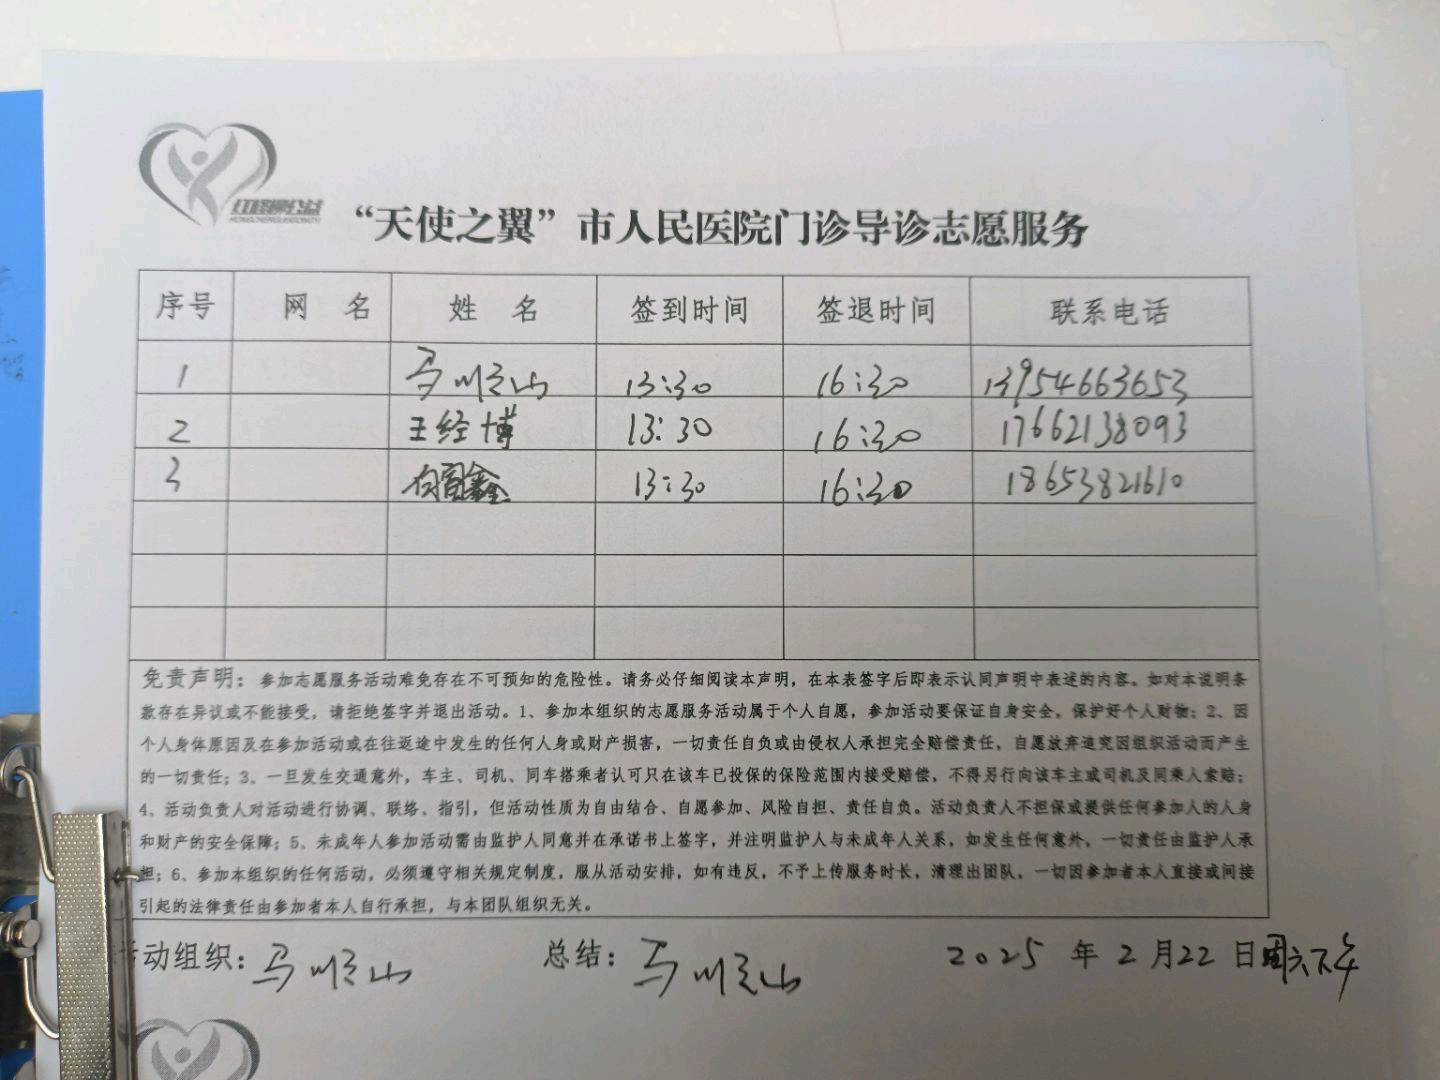 “天使之翼”市人民医院门诊导诊志愿服务
序号 网 名 姓 名 签到时间 签退时间 联系电话
1 马顺山 13:30 16:30 13954663653
2 王经博 13:30 16:30 17662138093
3 鑫 13:30 16:30 18653821610
免责声明：参加志愿服务活动难免存在不可预知的危险性。请务必仔细阅读本声明，在本表签字后即表示认同声明中表述的内容。如对本说明条
款存在异议或不能接受，请拒绝签字并退出活动。1、参加本组织的志愿服务活动属于个人自愿，参加活动要保证自身安全，保护好个人财物；2、因
个人身体原因及在参加活动或在往返途中发生的任何人身或财产损害，一切责任自负或由侵权人承担完全赔偿责任，自愿放弃追究因组织活动而产生
的一切责任；3、一旦发生交通意外，车主、司机、同车搭乘者认可只在该车已投保的保险范围内接受赔偿，不得另行向该车主或司机及同乘人索赔；
4、活动负责人对活动进行协调、联络、指引，但活动性质为自由结合、自愿参加、风险自担、责任自负。活动负责人不担保或提供任何参加人的人身
和财产的安全保障；5、未成年人参加活动需由监护人同意并在承诺书上签字，并注明监护人与未成年人关系，如发生任何意外，一切责任由监护人承
担；6、参加本组织的任何活动，必须遵守相关规定制度，服从活动安排，如有违反，不予上传服务时长，清理出团队，一切因参加者本人直接或间接
引起的法律责任由参加者本人自行承担，与本团队组织无关。
活动组织：马顺山 总结：马顺山 2025 年 2 月 22 日周六下午